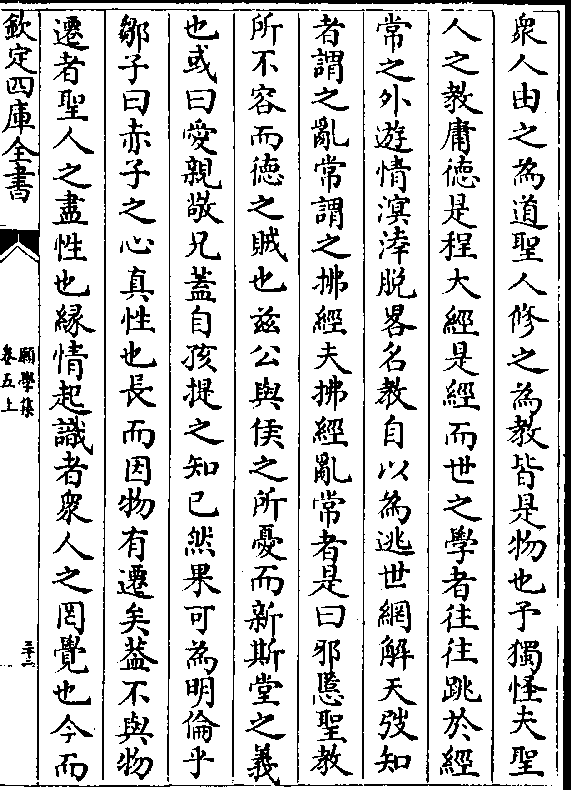 衆人由之為道聖人修之為教皆是物也予獨怪夫聖
人之教庸德是程大經是經而世之學者往往跳於經
常之外遊情溟涬脱畧名教自以為逃世網解天弢知
者謂之亂常謂之拂經夫拂經亂常者是曰邪慝聖教
所不容而德之賊也兹公與侯之所憂而新斯堂之義
也或曰愛親敬兄葢自孩提之知已然果可為明倫乎
鄒子曰赤子之心真性也長而因物有遷矣葢不與物
遷者聖人之盡性也緣情起識者衆人之罔覺也今而
欽定四庫全書
願學集
卷五上
三十二